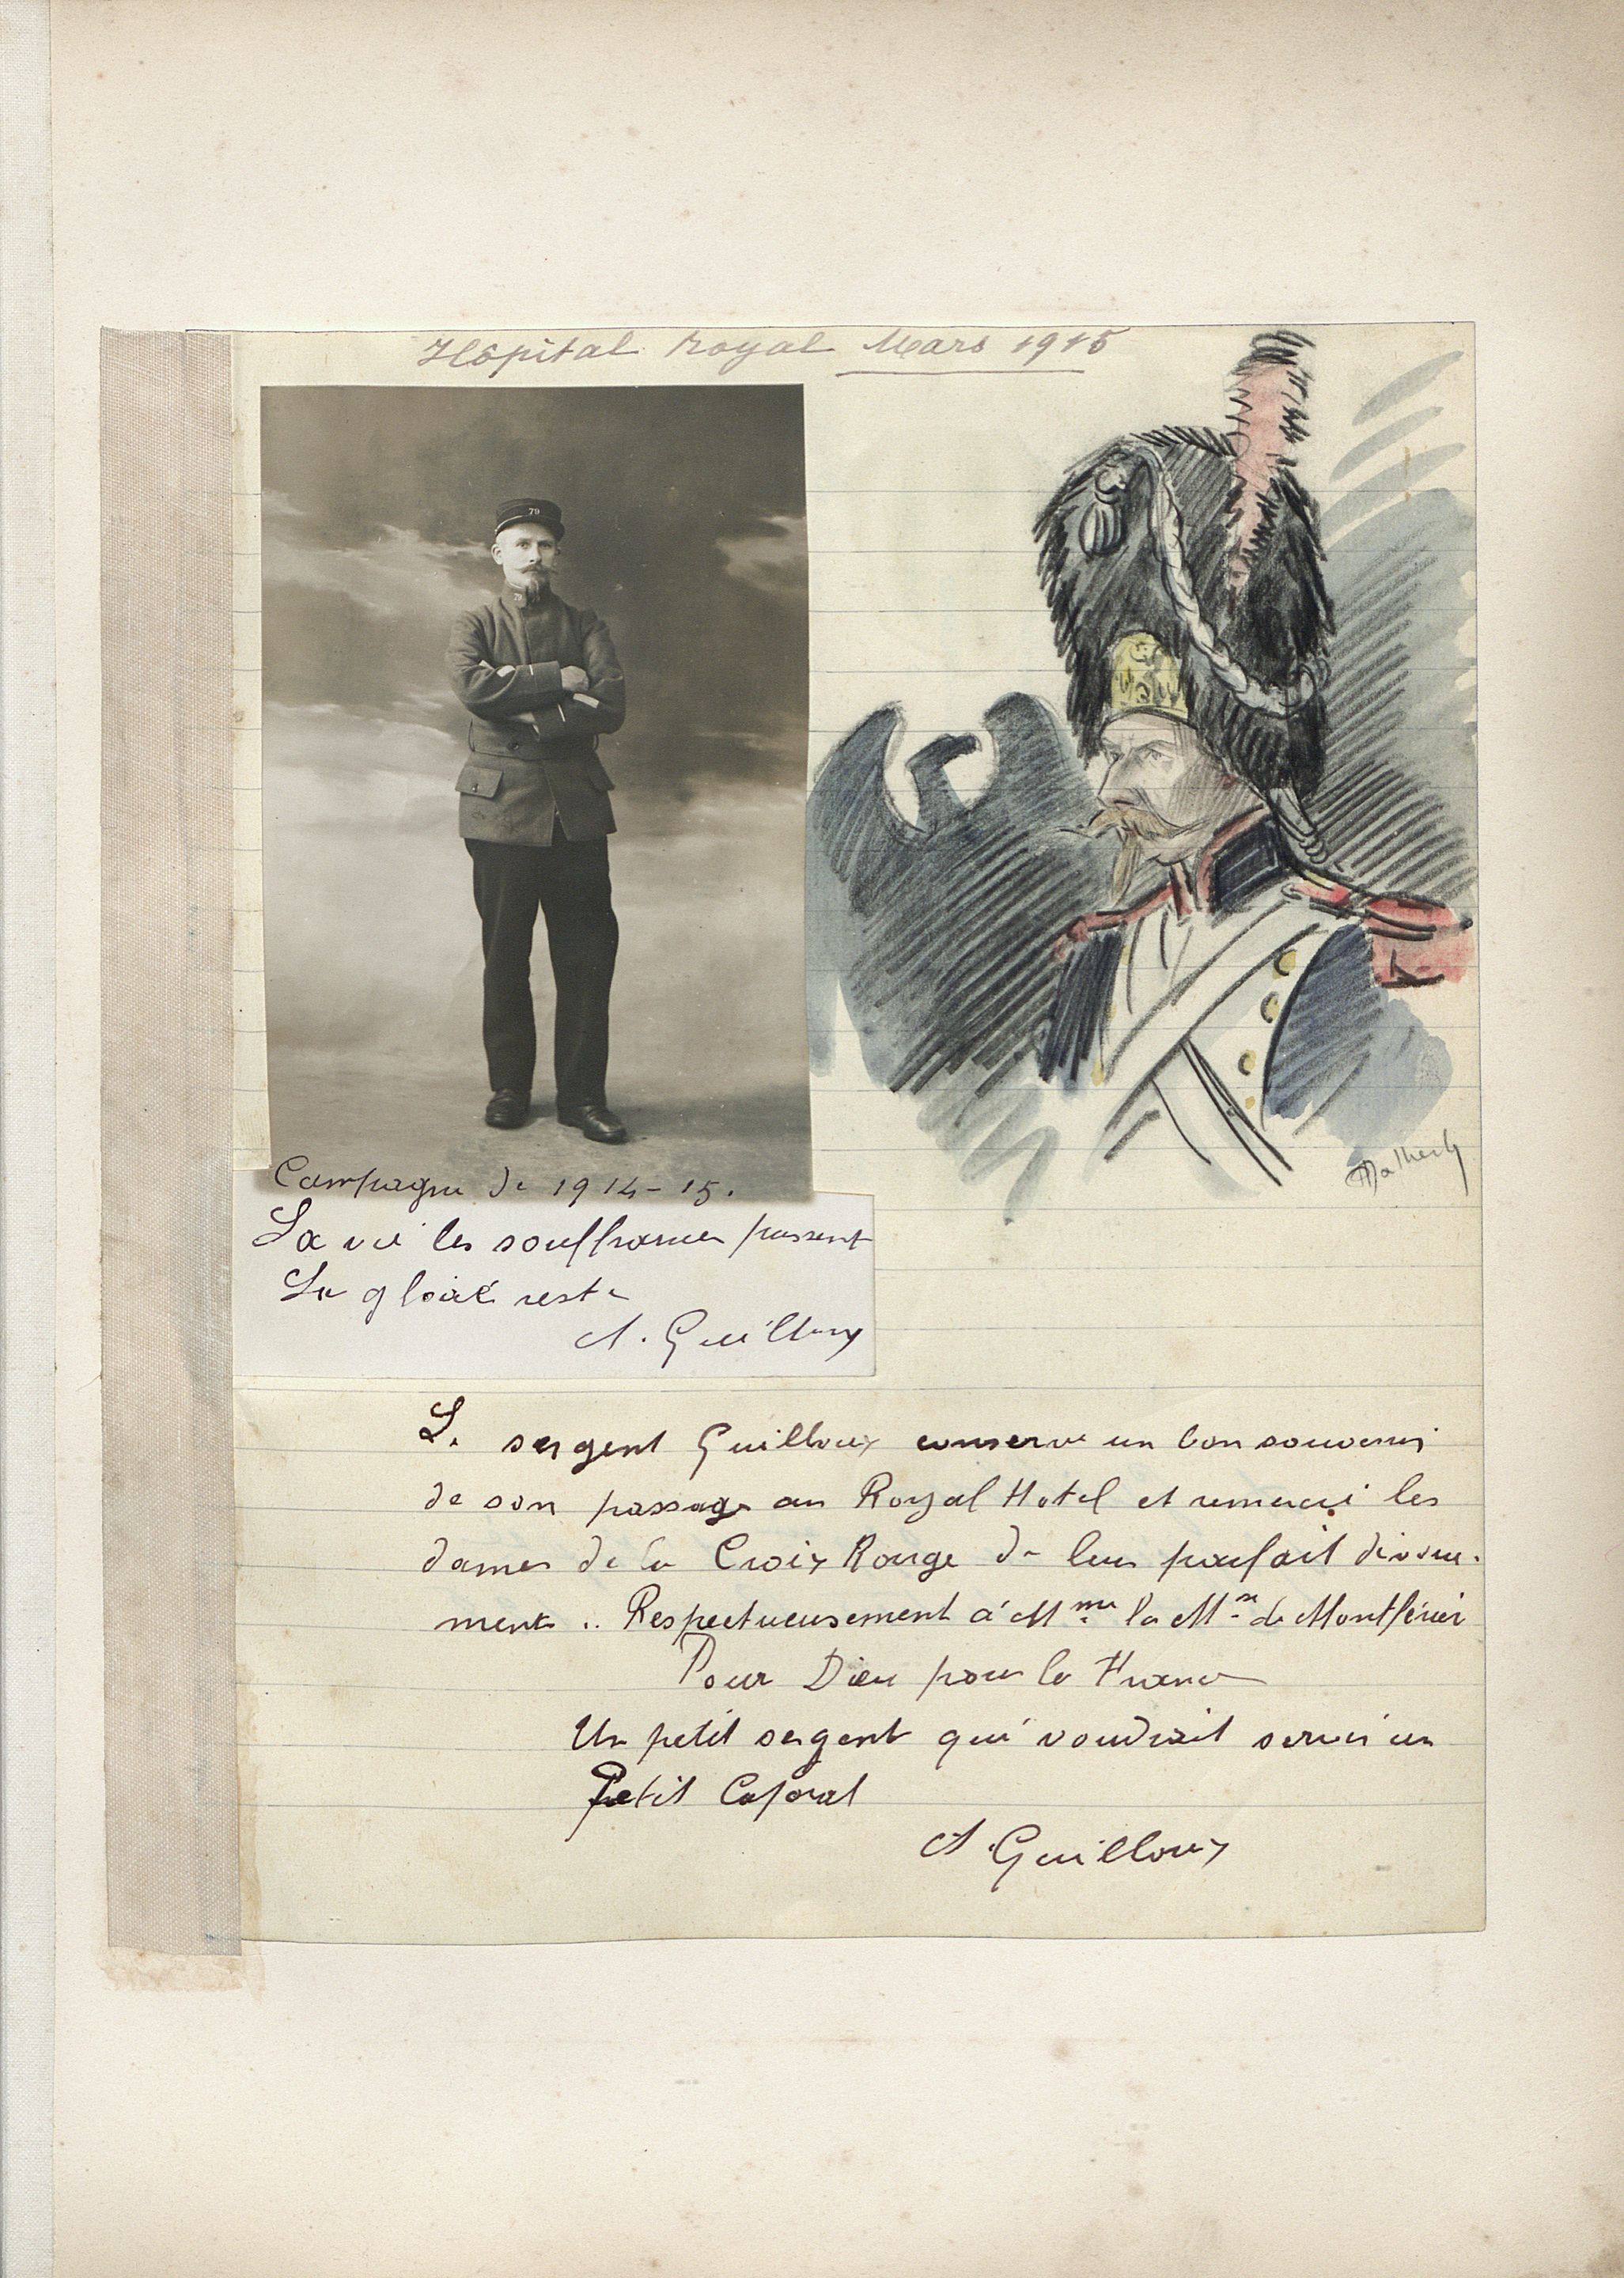 Hôpital Royal Mars 1915
79
79
Campagne de 1914-15.
La vie les souffrances passent
La gloire reste
A. Guilloux
Le sergent Guilloux conserve un bon souvenir
de son passage au Royal Hotel et remerci les
dames de la Croix Rouge de leur parfait dévoue-
ment .. Respectueusement à Mme la Mse de Montférier
Pour Dieu pour la France
Un petit sergent qui voudrait servir un
Petit Caporal
A Guilloux